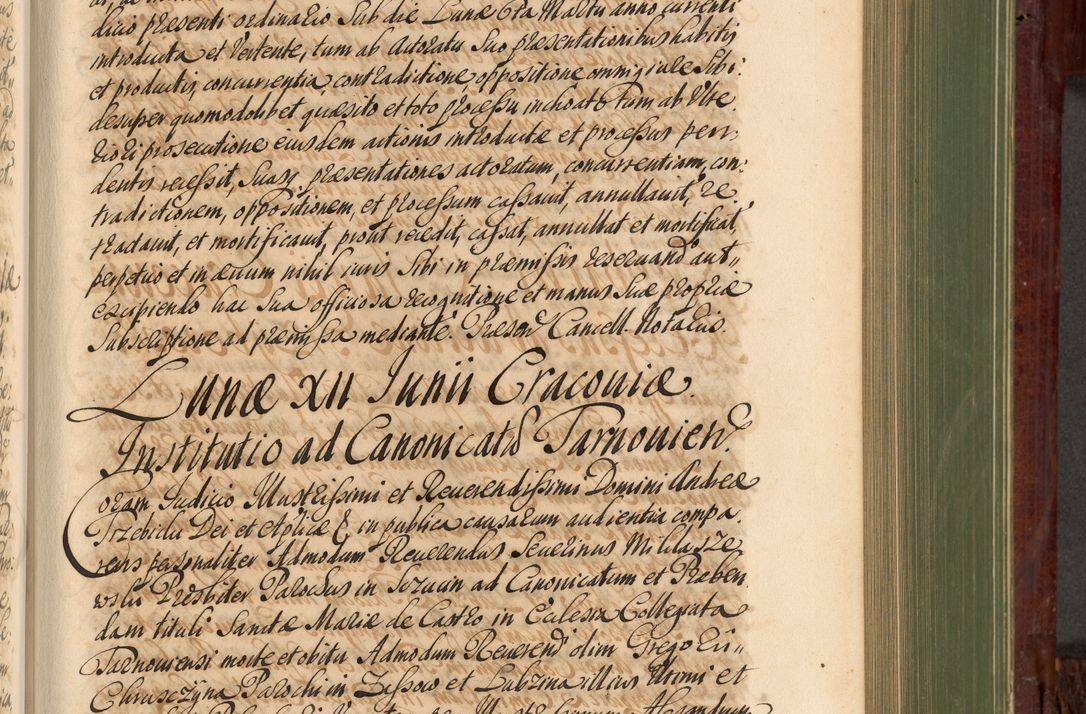 dicio præsenti ordinario sub die Lunæ 6ta Martii anno currenti
introducta et vertente, tum ab actoratu suo præsentationibus habitis
et productis, concurrentia contradictione, oppositione omniq iure sibi
desuper quomodolibet quæsito et toto processu inchoato tum ab ulte
riori prosecutione eiusdem actionis introductæ et processus pen,
dentis recessit, suasq præsentationes actoratum, concurrentiam, con,
tradictionem, oppositionem, et processum cassavit, annullavit, re
tradavit, et mortificavit, prout recedit, cassat, annullat et mortificat,
perpetuo et in ævum nihil iuris sibi in præmissis reservand aut,,
excipiendo hac sua officiosa recognitione et manus suæ propriæ
subscriptione ad præmissa mediante. Præsen Cancell. Notariis.
Lunæ XII Junii Cracoviæ.
Institutio ad Canonicat Tarnovien.
Coram Judicio Illustrissimi et Reverendissimi Domini Andreæ
Trzebicki Dei et Aplicæ & in publica causarum audientia compa,
rens personaliter Admodum Reverendus Severinus Milłasze
wski Presbiter Parochus in Jozwin ad Canonicatum et Præben
dam tituli Sanctæ Mariæ de Castro in Ecclesia Collegiata
Tarnoviensi morte et obitu Admodum Reverend olim Gregorii,,
Chrusczyna Parochi in Zassow et Lubzina illius ultimi et